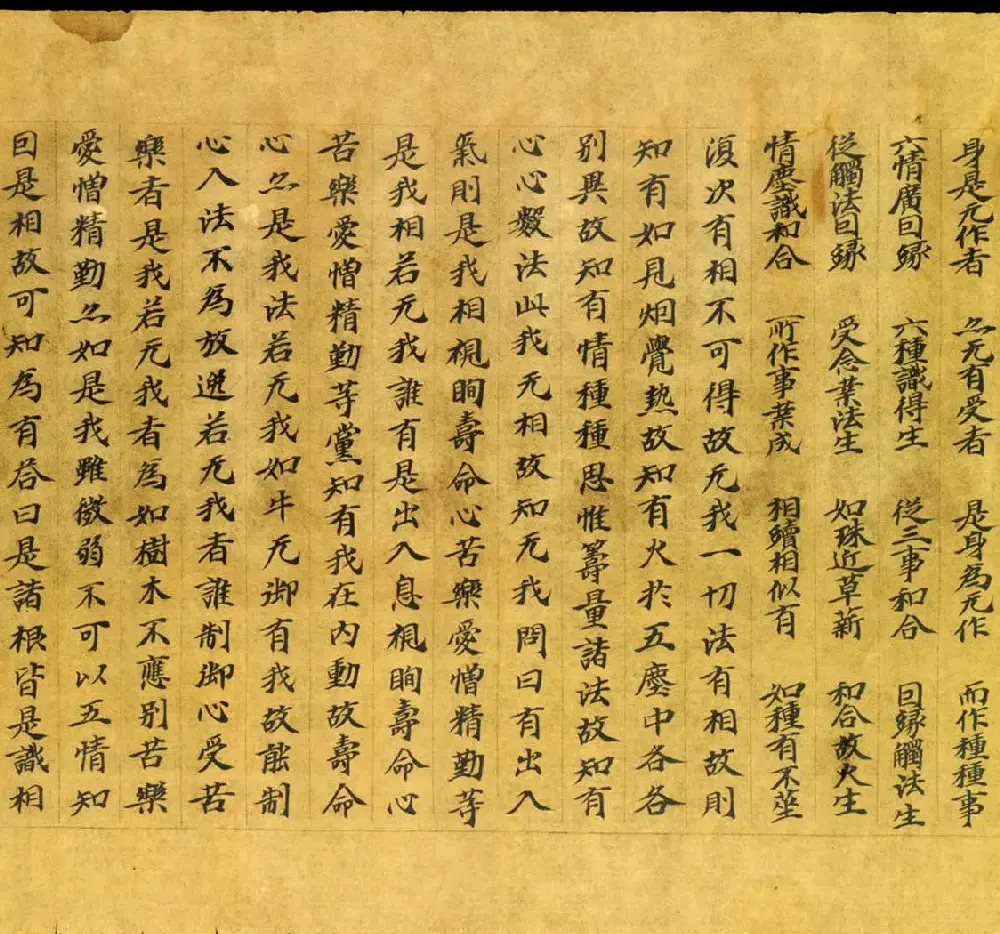 身是无作者 亦无有受者 是身為无作 而作種種事
六情廣因緣 六種識得生 從三事和合 因緣觸法生
從觸法因緣 受念業法生 如珠近草薪 和合故火生
情塵識和合 所作事業成 相續相似有 如種有不壞
復次有相不可得故无我一切法有相故則
知有如見烟覺熱故知有火於五塵中各各
別異故知有情種種思惟籌量諸法故知有
心心數法此我无相故知无我問曰有出入
氣則是我相視眴壽命心苦樂愛憎精勤等
是我相若无我誰有是出入息視眴壽命心
苦樂愛憎精勤等黨知有我在內動故壽命
心亦是我法若无我如牛无御有我故能制
心入法不為放逸若无我者誰制御心受苦
樂者是我若无我者為如樹木不應別苦樂
愛憎精勤亦如是我雖微弱不可以五情知
因是相故可知為有荅曰是諸根皆是識相